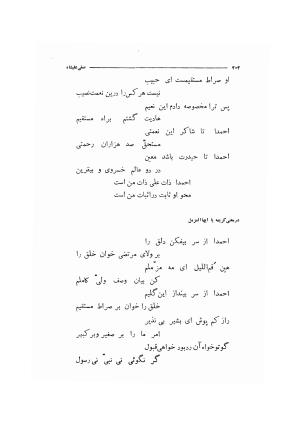 ۲۰۲ صفی علیشاه
او صراط مستقیمست ای حبیب
نیست هر کس را درین نعمت نصیب
پس ترا مخصوصه دادم این نعیم
هادیت گشتم براه مستقیم
احمدا تا شاکر این نعمتی
مستحق صد هزاران رحمتی
احمدا تا حیدرت باشد معین
در دو عالم خسروی و بیقرین
احمدا ذات علی ذات من است
محو او ثابت و را اثبات من است
در معنی کریمه یا ایها المزمل
احمدا از سر بیفکن دلق را
بر ولای مرتضی خوان خلق را
هین قم اللیل ای مه مزملم
کن بیان وصف ولی کاملم
احمدا از سر بینداز این گلیم
خلق را خوان بر صراط مستقیم
راز کم پوش ای بشیر بی نذیر
امر ما را بر صغیر و بر کبیر
گو تو خواه آن رد بود خواهی قبول
گر نگوئی نی نبی نی رسول